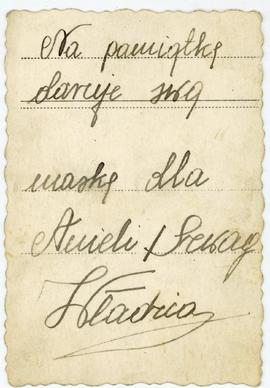 Na pamiątkę
daruje swą
maskę dla
Anieli / Szwag
Władzia